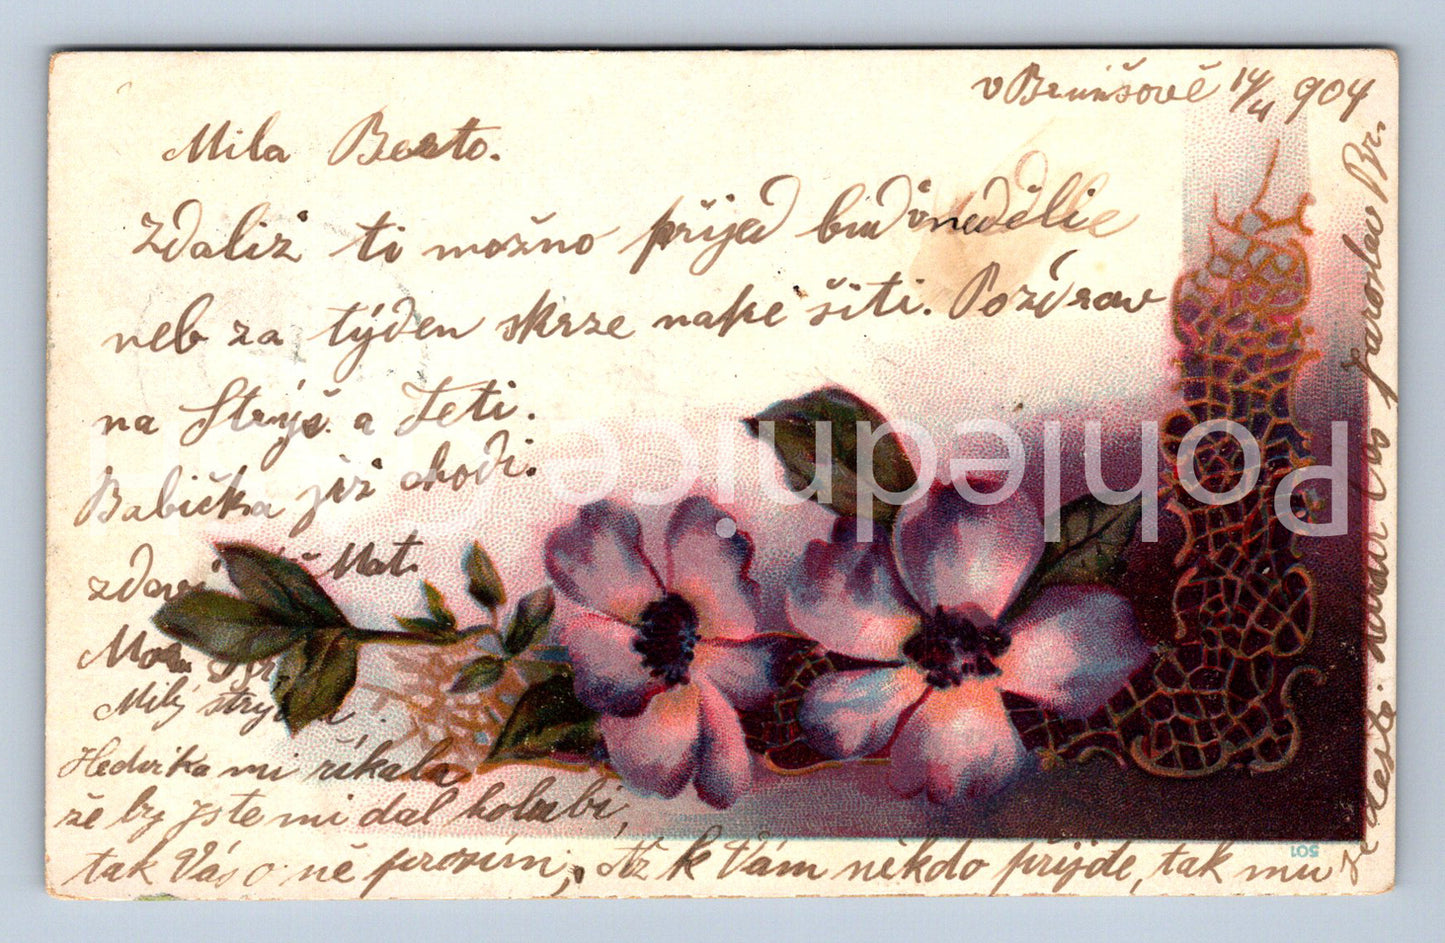 v Brušově 14/4 904
Mila Berto.
Zdaliž ti možno přijed buď v neděli
neb za týden skrze naké šití. Pozdrav
na Strýc a Teti.
Babička již chodí.
Mat.
Milý strý
Hedvika mi říkala
že by jste mi dal holubi,
tak Vás o ně prosím, Až k Vám někdo přijde, tak mu
je dejte.
Jaroslav Br.
501
Pohlednice